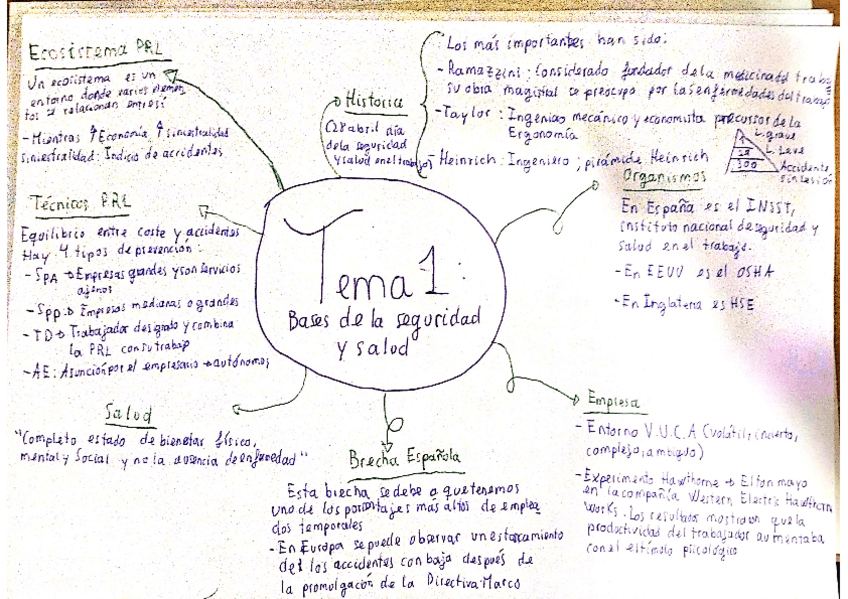 Ecosistema PRL
Un ecosistema es un
entorno donde varios elemen
tos se relacionan entre sí
- Mientras ↑ Economía, ↑ siniestralidad
siniestralidad: Indicio de accidentes
Historica
(28 abril día
de la seguridad
y salud en el trabajo)
Los más importantes han sido:
- Ramazzini: Considerado fundador de la medicina del traba
su obra magistral se preocupo por las enfermedades del trabajo
- Taylor: Ingeniero mecánico y economista precursos de la
Ergonomía
- Heinrich: Ingeniero; pirámide Heinrich
L. grave
L. Leve
300
Accidente
sin lesión
Técnicas PRL
Equilibrio entre coste y accidentes
Hay 4 tipos de prevención:
- SPA → Empresas grandes y son servicios
ajenos
- SPP: → Empresas medianas o grandes
- TD → Trabajador designado y combina
la PRL con su trabajo
- AE: Asunción por el empresario → autónomos
Tema 1:
Bases de la seguridad
y salud
Organismos
En España es el INSST,
instituto nacional de seguridad y
salud en el trabajo.
- En EEUU es el OSHA
- En Inglaterra es HSE
Salud
"Completo estado de bienestar físico,
mental y social y no la ausencia de enfermedad"
Brecha Española
Esta brecha se debe a que tenemos
uno de los porcentajes más altos de emplea
dos temporales
- En Europa se puede observar un estancamiento
de los accidentes con baja después de
la promulgación de la Directiva Marco
Empresa
- Entorno V.U.C.A (volátil, incierto,
complejo, ambiguo)
- Experimento Hawthorne → Elton mayo
en la compañía Western Electric Hawthorn
Works. Los resultados mostraron que la
productividad del trabajador aumentaba
con el estímulo psicológico